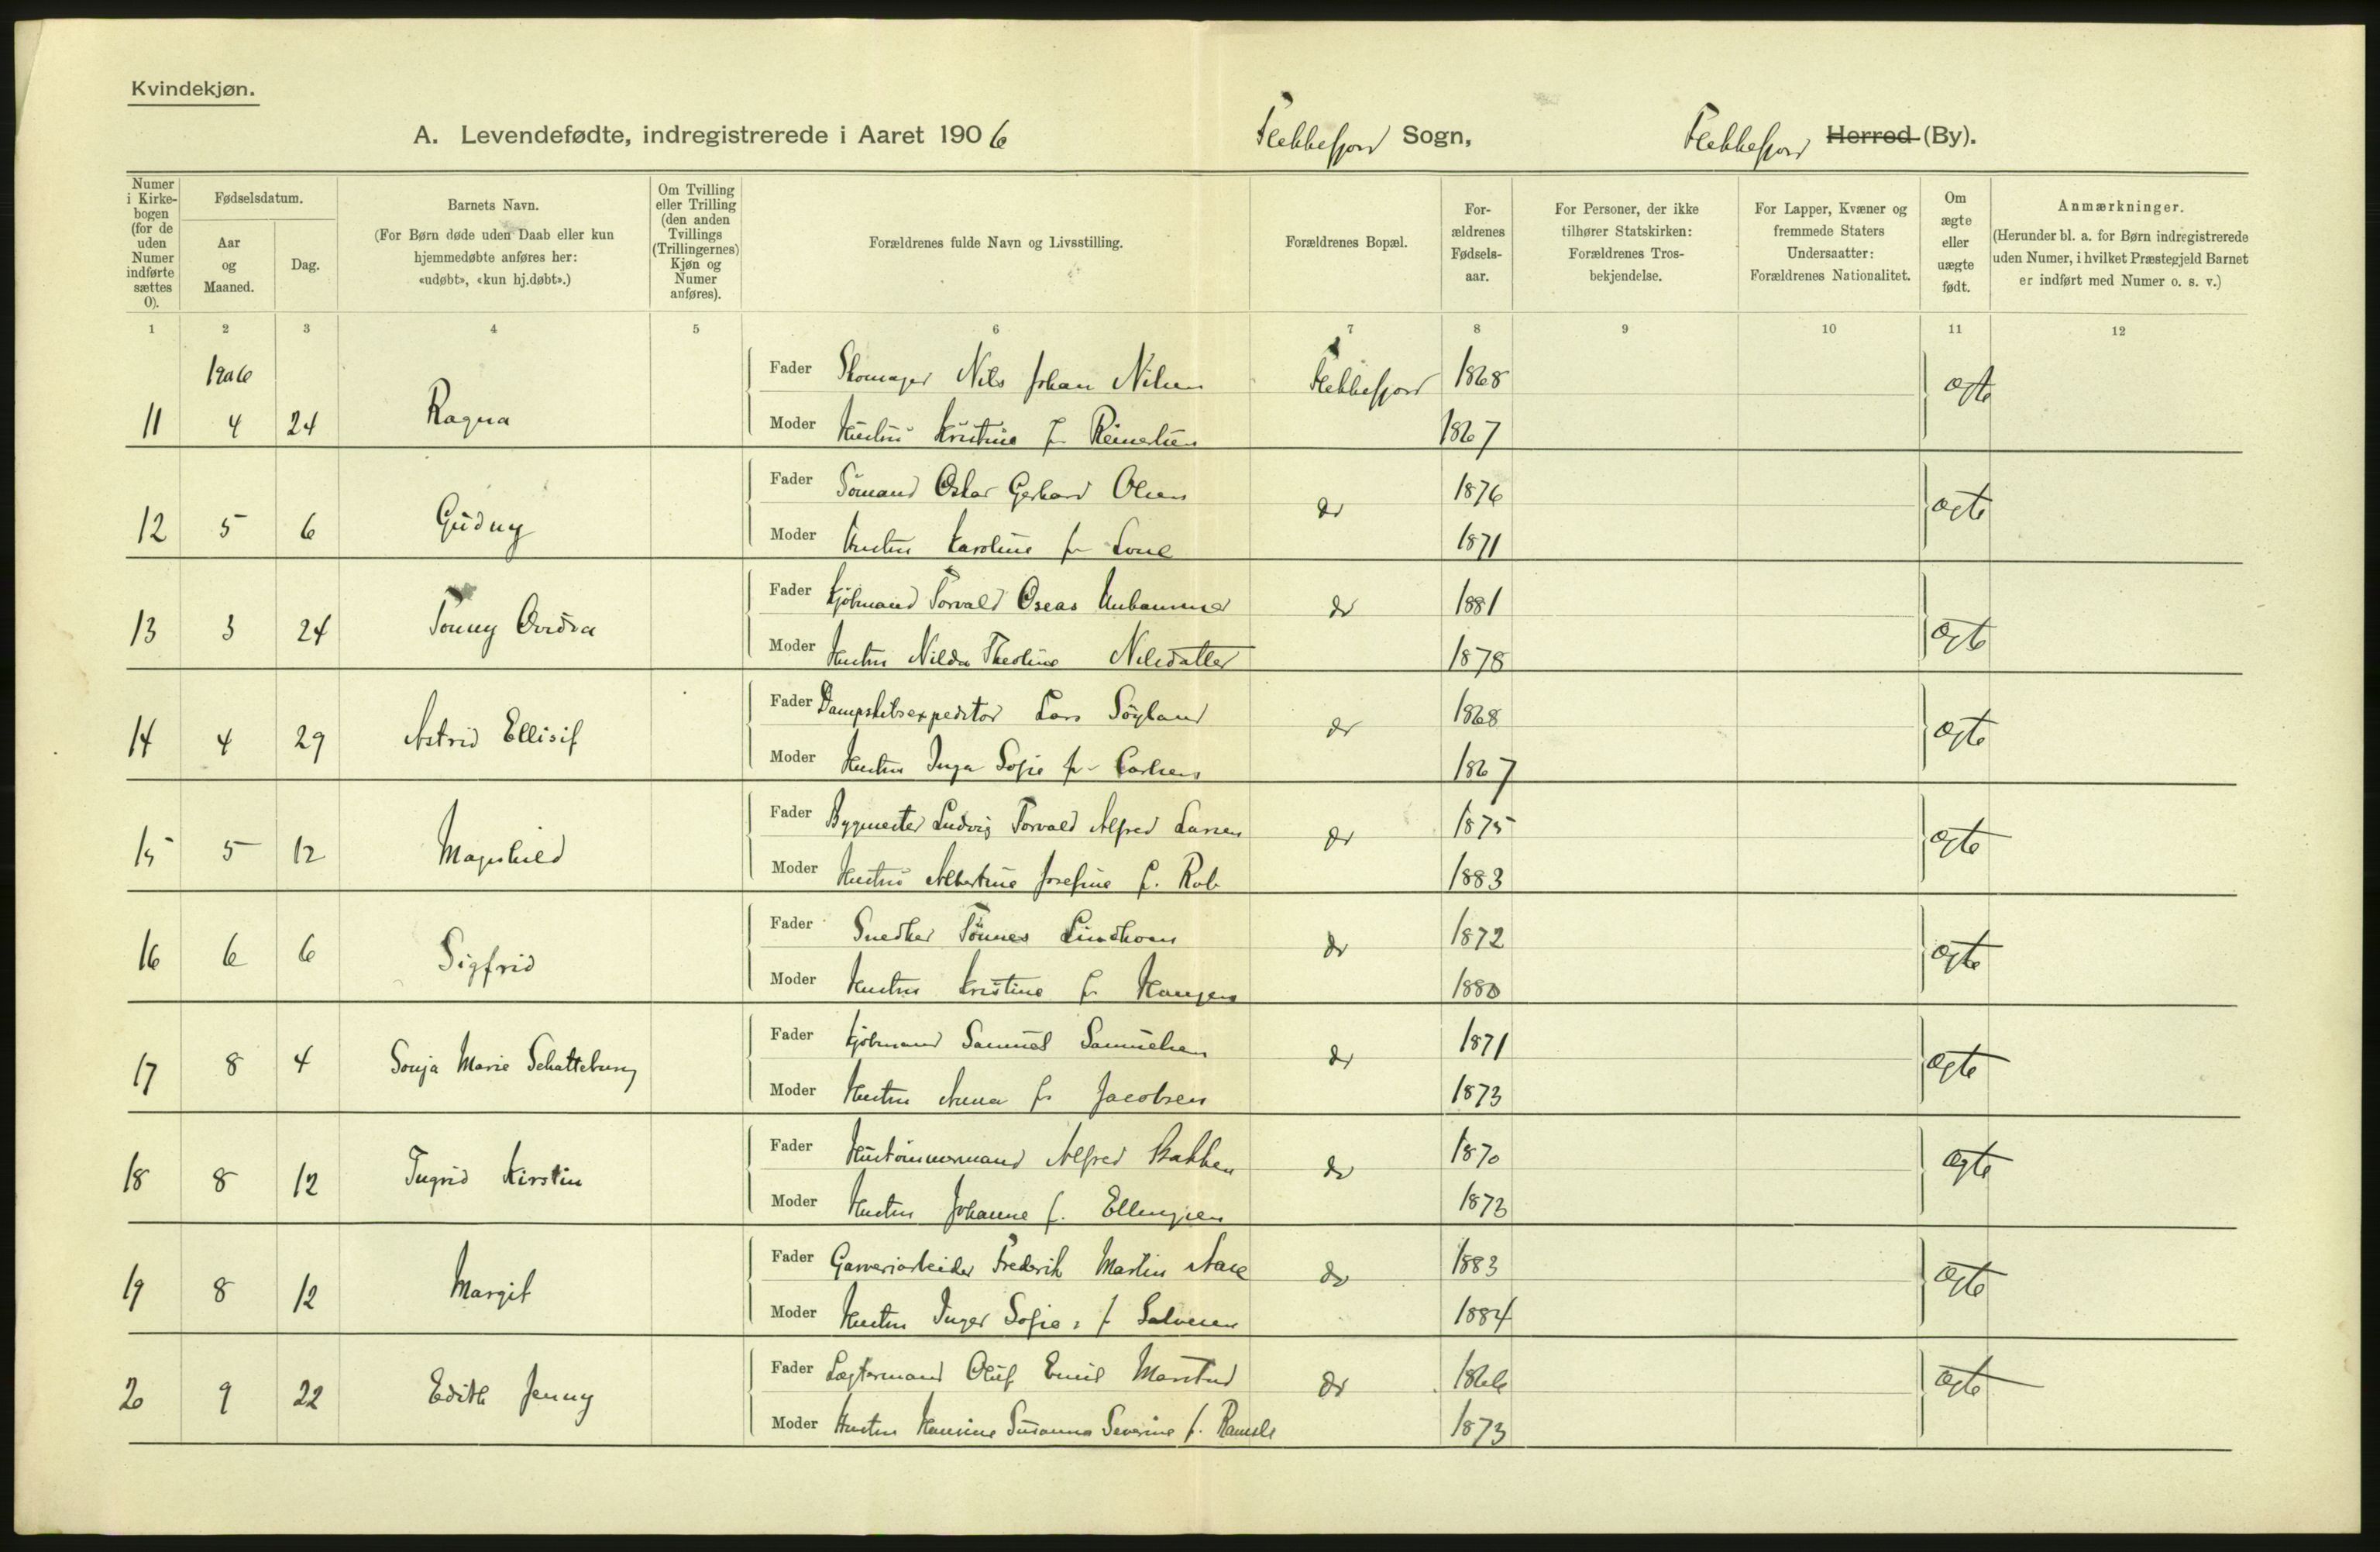 Kvindekjøn.
A. Levendefødte, indregistrerede i Aaret 1906 Flekkefjord Sogn, Flekkefjord Herred (By).
Numer i Kirkebogen (for de uden Numer indførte sættes 0).
Fødselsdatum.
Aar og Maaned.
Dag.
Barnets Navn.
(For Børn døde uden Daab eller kun hjemmedøbte anføres her: «udøbt», «kun hj.døbt».)
Om Tvilling eller Trilling (den anden Tvillings (Trillingernes) Kjøn og Numer anføres).
Forældrenes fulde Navn og Livsstilling.
Forældrenes Bopæl.
Forældrenes Fødselsaar.
For Personer, der ikke tilhører Statskirken: Forældrenes Trosbekjendelse.
For Lapper, Kvæner og fremmede Staters Undersaatter: Forældrenes Nationalitet.
Om ægte eller uægte født.
Anmærkninger.
(Herunder bl. a. for Børn indregistrerede uden Numer, i hvilket Præstegjeld Barnet er indført med Numer o. s. v.)
1 2 3 4 5 6 7 8 9 10 11 12
1906
Fader Skomager Nils Johan Nilsen Flekkefjord 1868 ægte
11 4 24 Ragna
Moder Hustru Kristine f. Reinertsen 1867
Fader Sömand Oskar Gerhard Olsen do 1876 ægte
12 5 6 Gudny
Moder Hustru Karoline f. Lone 1871
Fader Kjöbmand Torvald Oseas do 1881 ægte
13 3 24 Tonny
Moder Hustru Nilda Theoline Nilsdatter 1878
Fader Dampskibsexpeditör Lars Söyland do 1868 ægte
14 4 29 Astrid Ellisif
Moder Hustru Inga Sofie f. Carlsen 1867
Fader Bygmester Ludvig Torvald Alfred Larsen do 1875 ægte
15 5 12 Magnhild
Moder Hustru Albertine Josefine f. 1883
Fader Snedker Tönnes do 1872 ægte
16 6 6 Sigfrid
Moder Hustru Kristine f. Haugen 1880
Fader Kjöbmand Samuel Samuelsen do 1871 ægte
17 8 4 Sonja Marie
Moder Hustru Anna f. Jacobsen 1873
Fader Hustömmermand Alfred Bakken do 1870 ægte
18 8 12 Ingrid Kirstin
Moder Hustru Johanne f. Ellingsen 1873
Fader Garveriarbeider Frederik Martin Aase do 1883 ægte
19 8 12 Margit
Moder Hustru Inger Sofie f. Salvesen 1884
Fader Oluf Emil do 1866 ægte
20 9 22 Edith Jenny
Moder Hustru Hansine Susanna Severine f. 1873